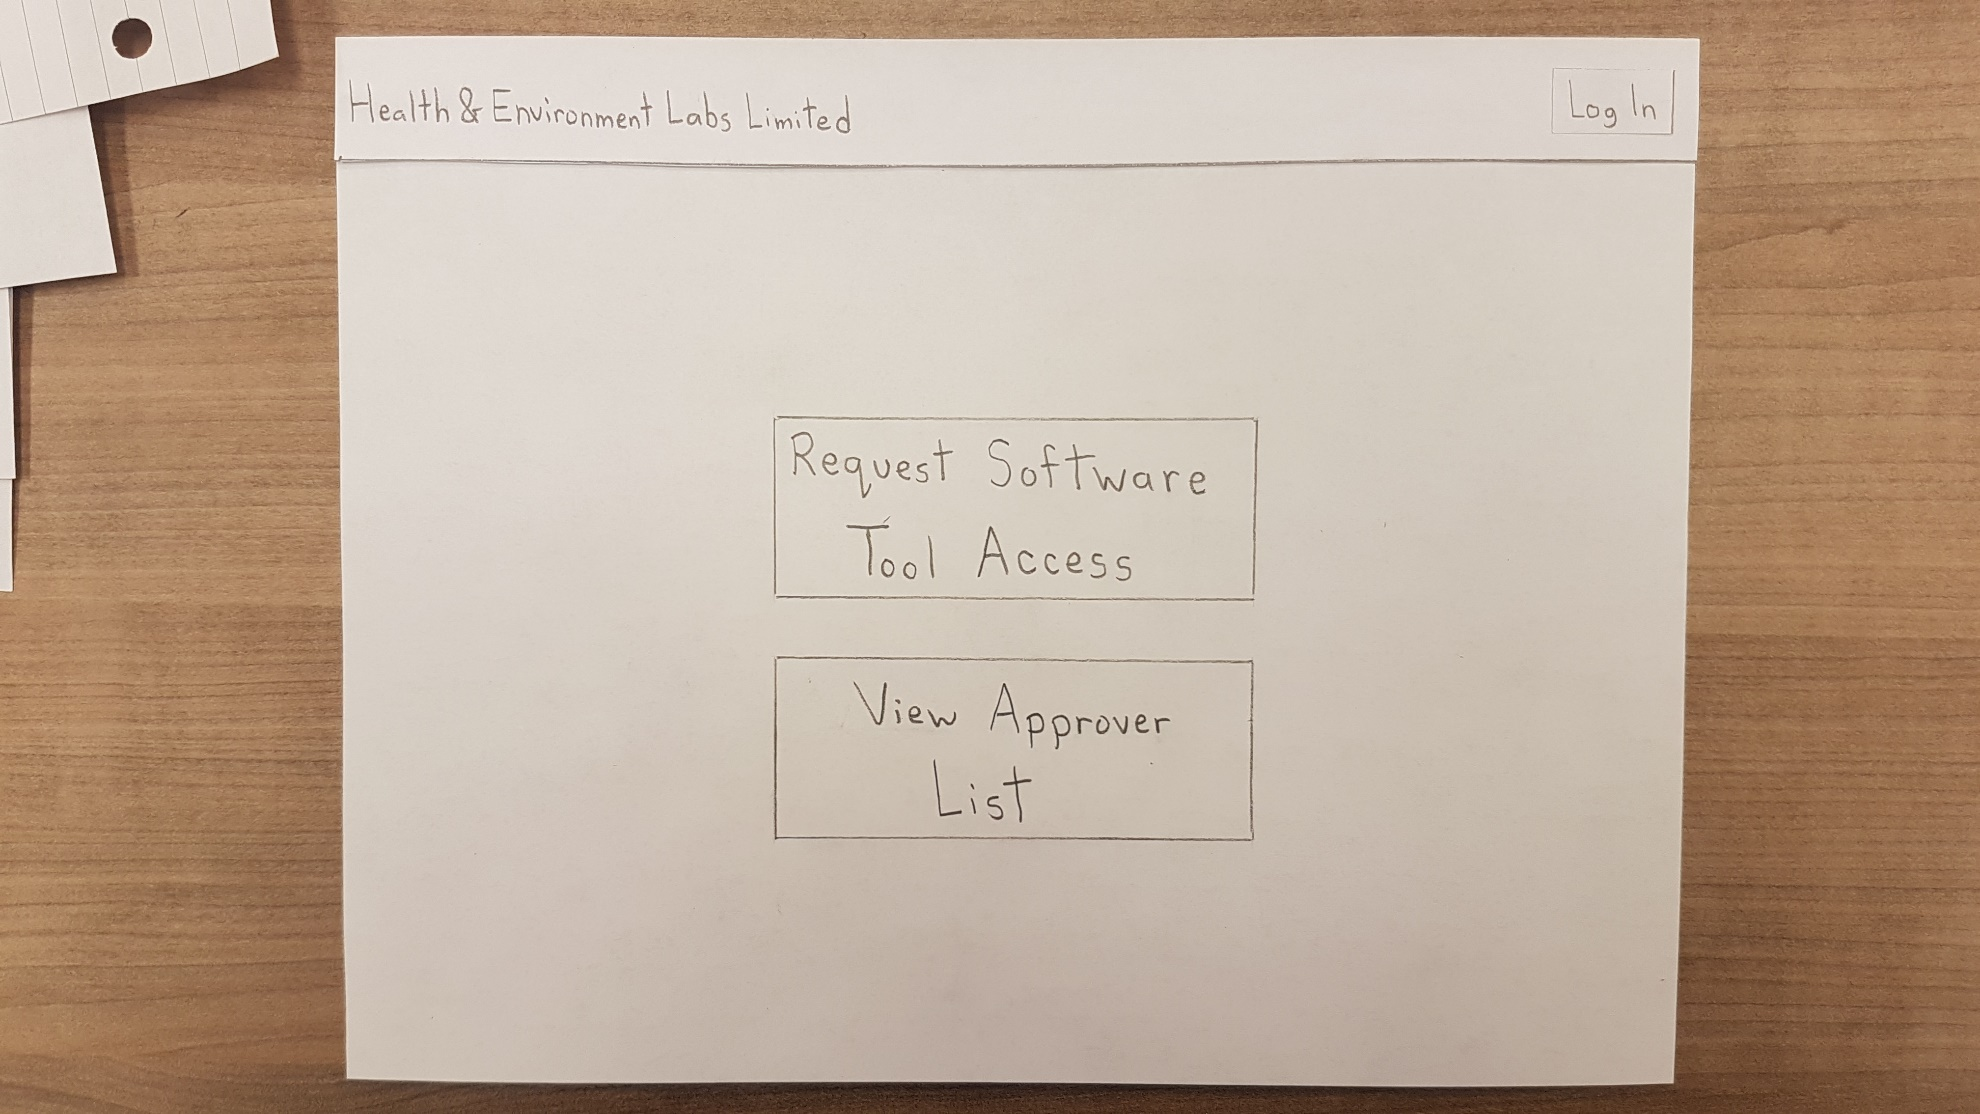 Health & Environment Labs Limited
Log In
Request Software
Tool Access
View Approver
List